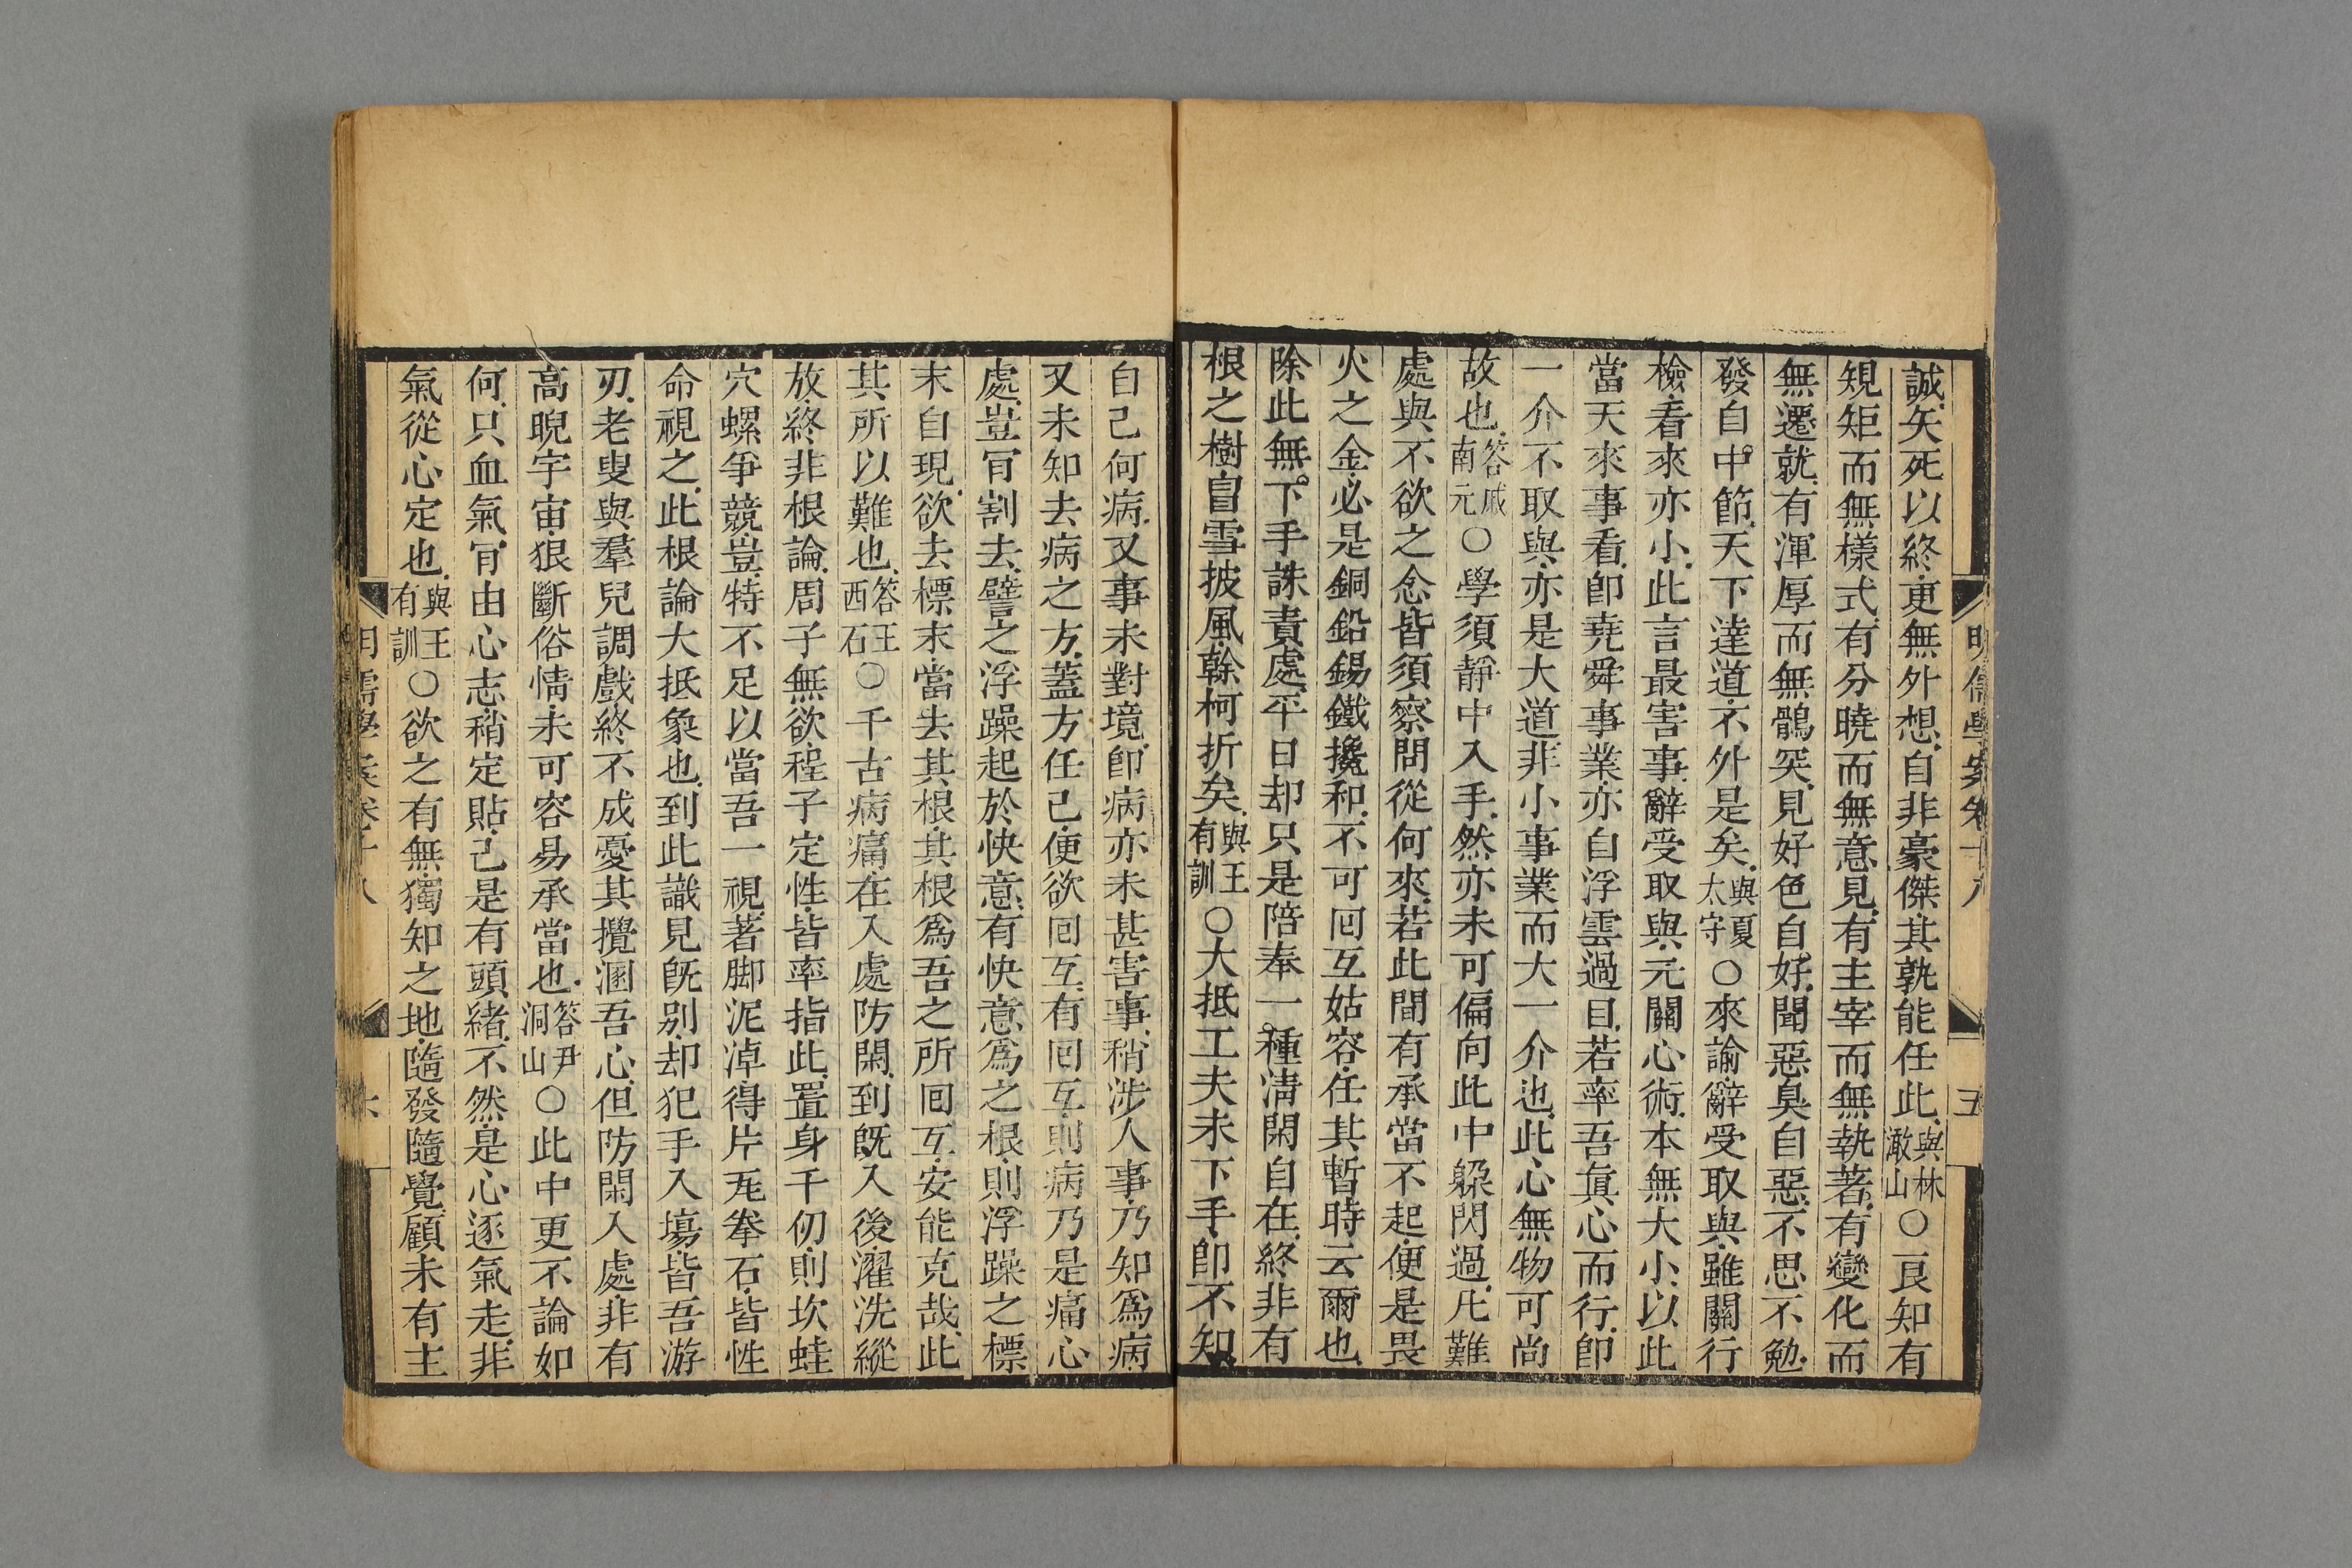 誠矢死以終更無外想自非豪傑其孰能任此與林澈山○良知有
規矩而無樣式有分曉而無意見有主宰而無執著有變化而
無遷就有渾厚而無鶻突見好色自好聞惡臭自惡不思不勉
發自中節天下達道不外是矣與夏太守○來諭辭受取與雖關行
檢看來亦小此言最害事辭受取與元關心術本無大小以此
當天來事看卽堯舜事業亦自浮雲過目若率吾眞心而行卽
一介不取與亦是大道非小事業而大一介也此心無物可尚
故也答戚南元○學須靜中入手然亦未可偏向此中躱閃過凡難
處與不欲之念皆須察問從何來若此間有承當不起便是畏
火之金必是銅鉛錫鐵攙和不可囘互姑容任其暫時云爾也
除此無下手誅責處平日却只是陪奉一種淸閑自在終非有
根之樹冒雪披風榦柯折矣與王有訓○大抵工夫未下手卽不知
自己何病又事未對境卽病亦未甚害事稍涉人事乃知爲病
又未知去病之方蓋方任己便欲囘互有囘互則病乃是痛心
處豈肎割去譬之浮躁起於快意有快意爲之根則浮躁之標
末自現欲去標末當去其根其根爲吾之所囘互安能克哉此
其所以難也答王西石○千古病痛在入處防閑到旣入後濯洗縱
放終非根論周子無欲程子定性皆率指此置身千仞則坎蛙
穴螺爭競豈特不足以當吾一視著脚泥淖得片瓦拳石皆性
命視之此根論大抵象也到此識見旣別却犯手入塲皆吾游
刃老叟與羣兒調戲終不成憂其攪溷吾心但防閑入處非有
高睨宇宙狠斷俗情未可容易承當也答尹洞山○此中更不論如
何只血氣肎由心志稍定貼己是有頭緖不然是心逐氣走非
氣從心定也與王有訓○欲之有無獨知之地隨發隨覺顧未有主